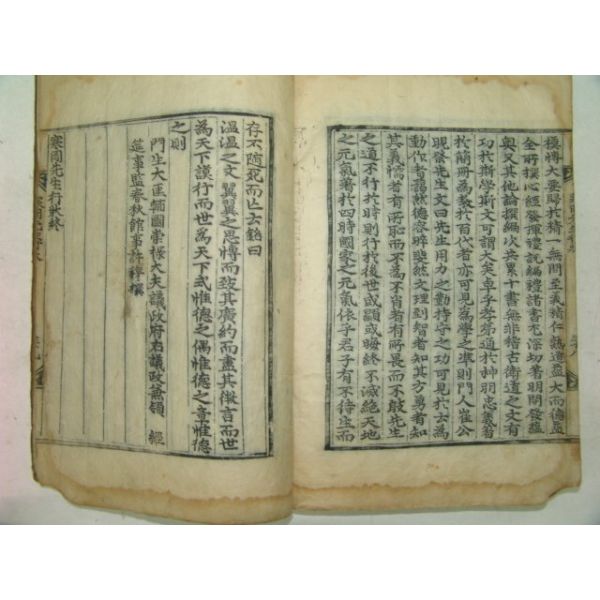 種將大要歸於精一無間至義精仁熟道益大而德益
全所撰心經發揮禮說編禮諸書尤深切著明開發蘊
奧又其他論撰編次共累十書無非稽古衛道之文有
功於斯學斯文可謂大矣卓乎孝弟通於神明忠義著
於簡冊爲敎於百代者亦可見爲學之準則門人崔公
晛祭先生文曰先生用力之勤持守之功可見於云爲
動作者藹然德容晬然文理到智者知其方勇者知
其義懦者有所恥而不爲不肖者有所畏而不敢先生
之道不行於時則行於後世或顯或晦終不滅絶天地
之元氣著於四時國家之元氣依乎君子有不待生而
存不隨死而亡云銘曰
溫溫之文翼翼之思博而致其廣約而盡其微言而世
爲天下謨行而世爲天下式惟德之偶惟德之章惟德
之則
門生大匡輔國崇祿大夫議政府右議政兼領 經
筵事監春秋館事許穆撰
寒岡先生行狀終